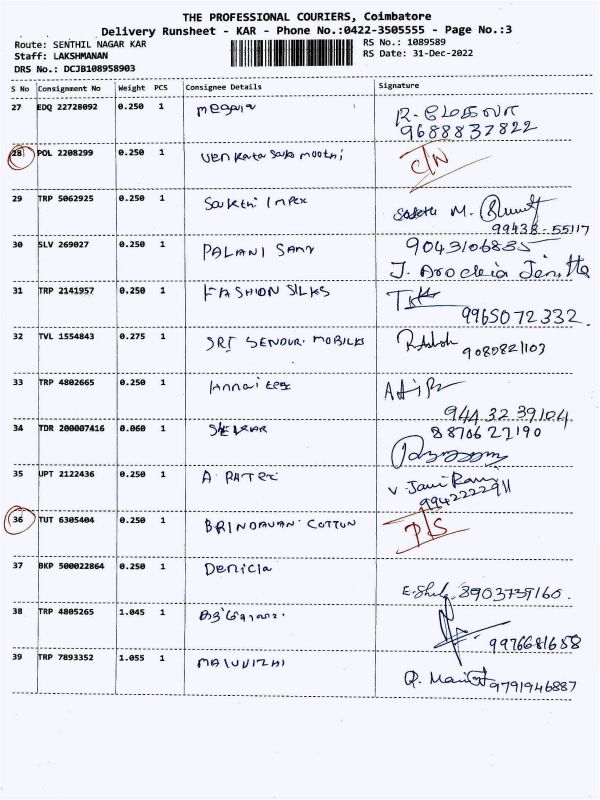 THE PROFESSIONAL COURIERS, Coimbatore
Delivery Runsheet - KAR - Phone No.:0422-3505555 - Page No.:3
Route: SENTHIL NAGAR KAR RS No.: 1089589
Staff: LAKSHMANAN RS Date: 31-Dec-2022
DRS No.: DCJB108958903
S No Consignment No Weight PCS Consignee Details Signature
27 EDQ 22728092 0.250 1 R. மேகலா
9688837822
28 POL 2208299 0.250 1 C/N
29 TRP 5062925 0.250 1 Sakthi Impex M.
99438-55117
30 SLV 269027 0.250 1 PALANI SAMY 9043106835
J. Arockia
31 TRP 2141957 0.250 1 FASHION SILKS
9965072332.
32 TVL 1554843 0.275 1 SRI SENDUR MOBILES 9080821103
33 TRP 4802665 0.250 1 Annai tex
944 32 39104
34 TDR 200007416 0.060 1 SHEKAR 88706 27190
35 UPT 2122436 0.250 1 V. Jansi Rani
9942222911
36 TUT 6305404 0.250 1 BRINDAVAN COTTON P/S
37 BKP 500022864 0.250 1 Denicla
8903739160.
38 TRP 4805265 1.045 1
9976681658
39 TRP 7893352 1.055 1 9791946887